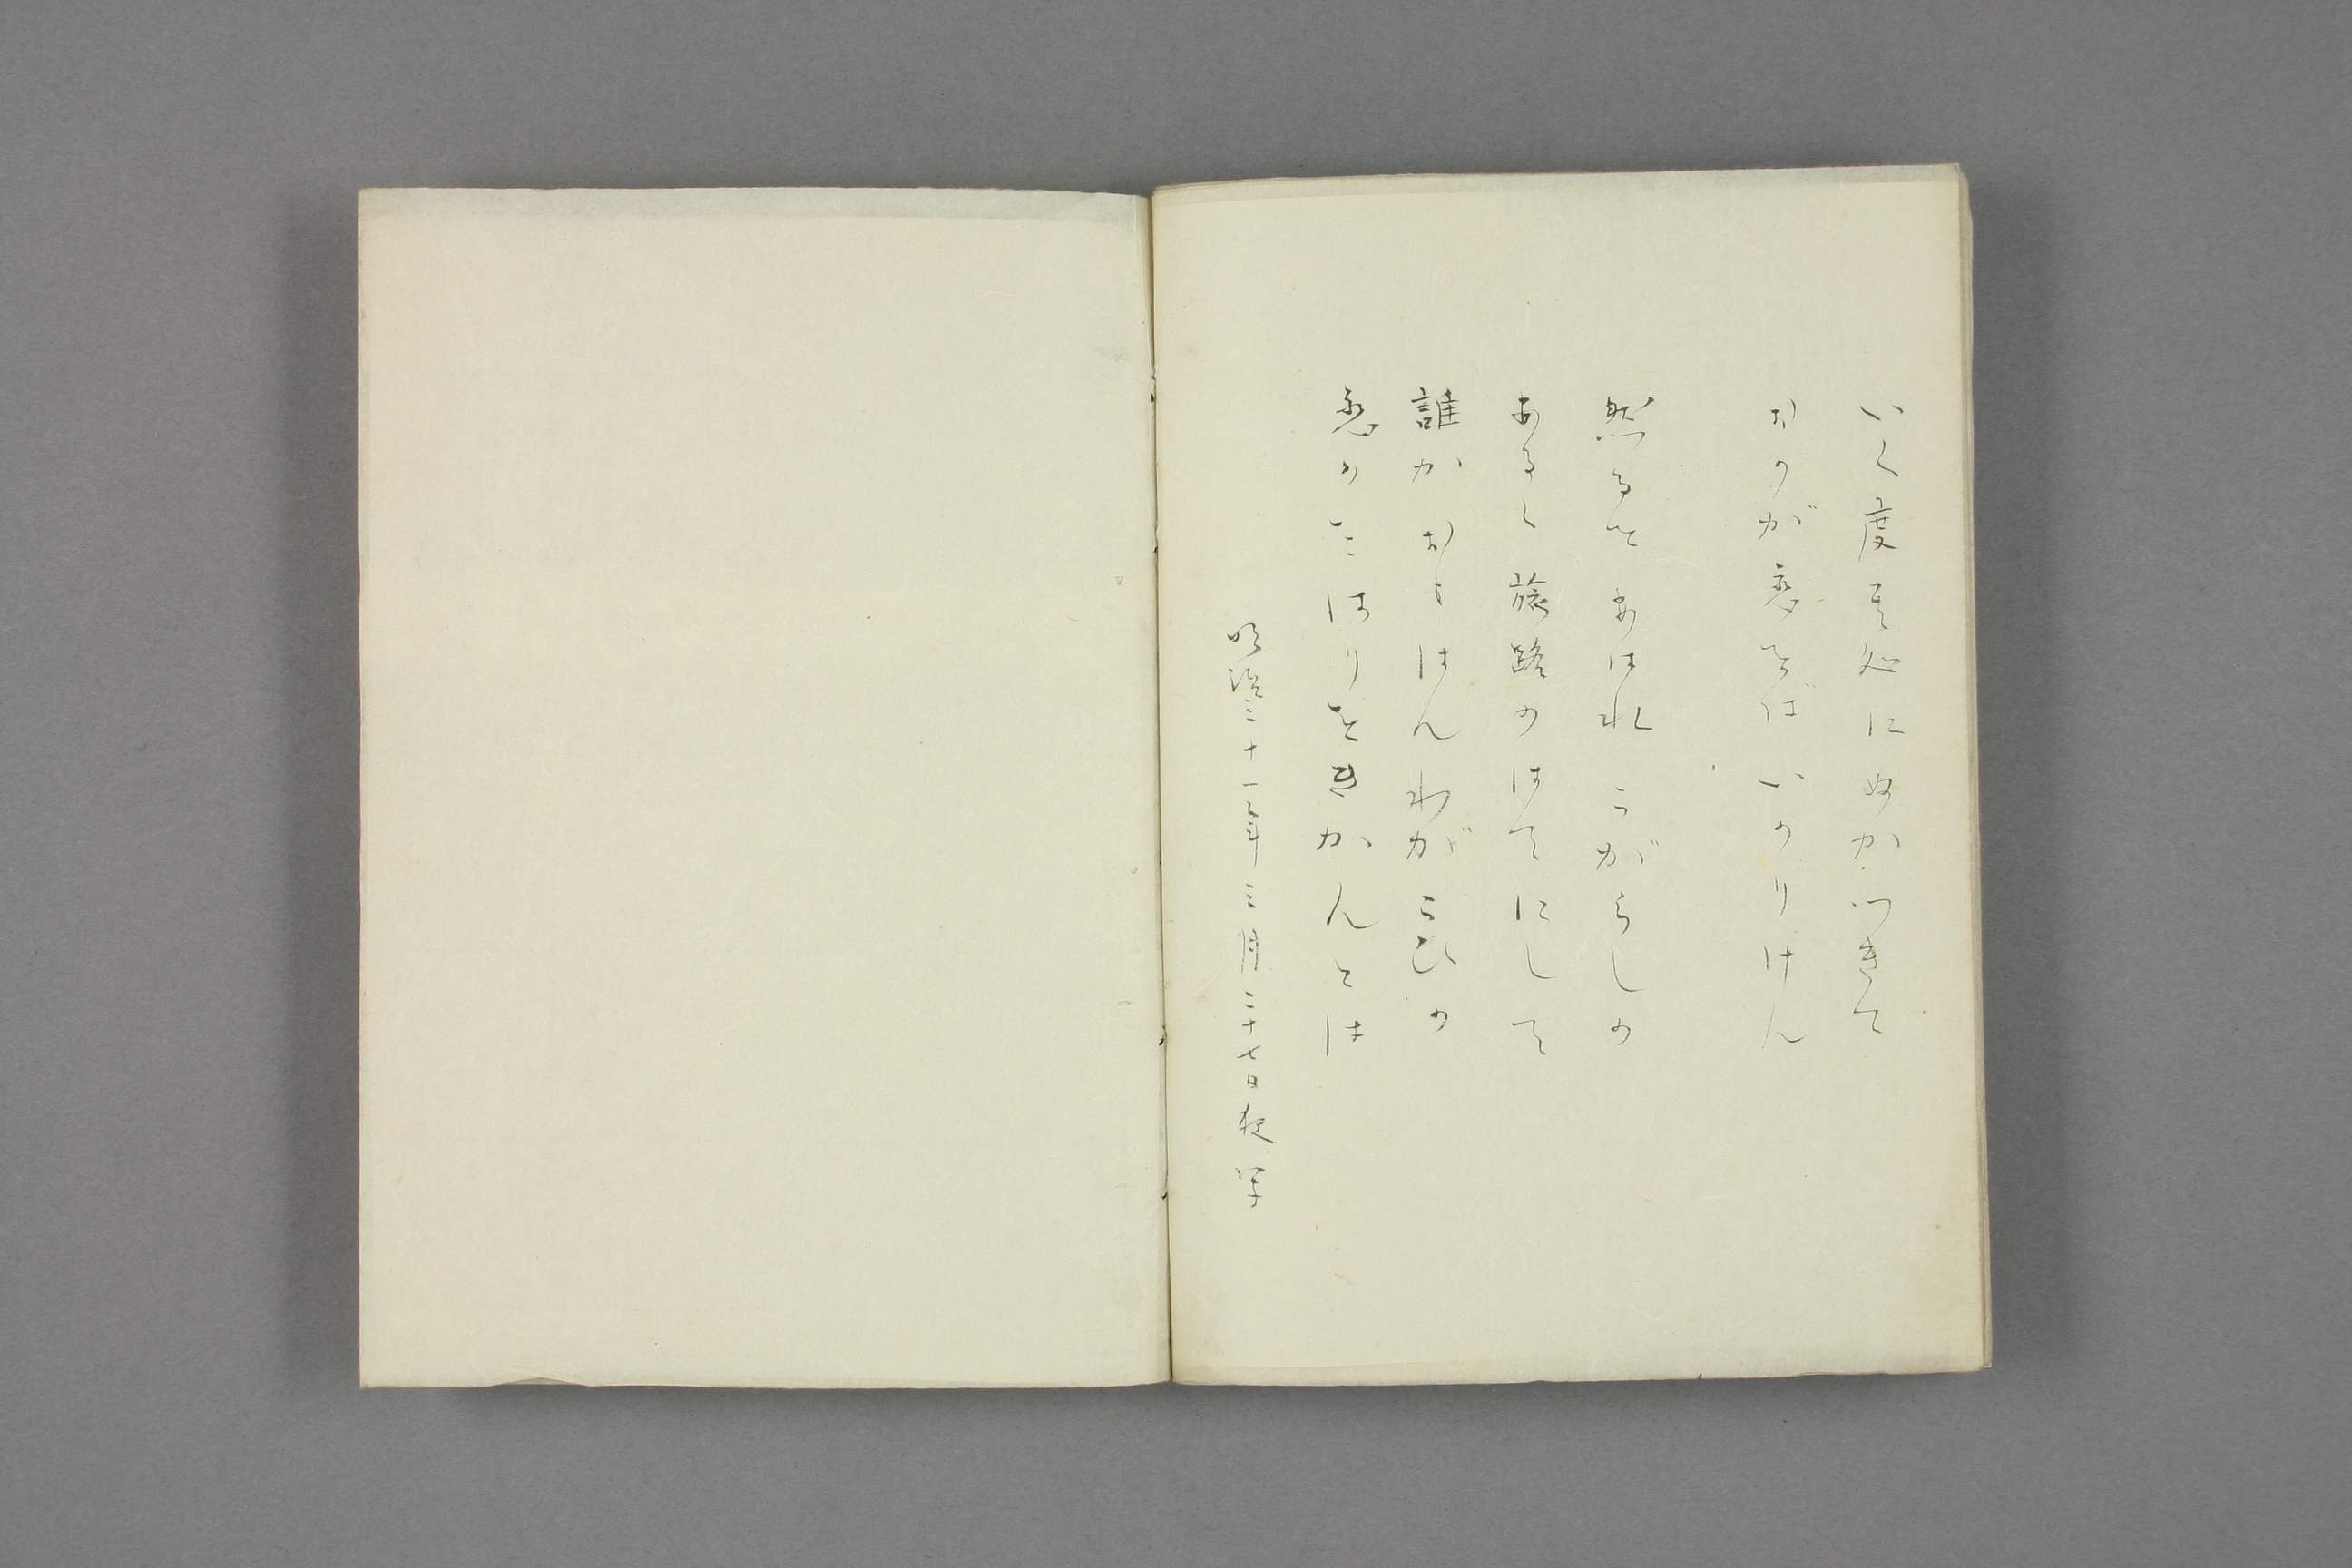 いく度其処にぬかつきて
おのが恋をばいのりけん
然るをあはれこがらしの
あらく旅路のはてにして
誰かおもはんわがこひの
恋のことはりをきかんとは
明治三十一年三月二十七日夜